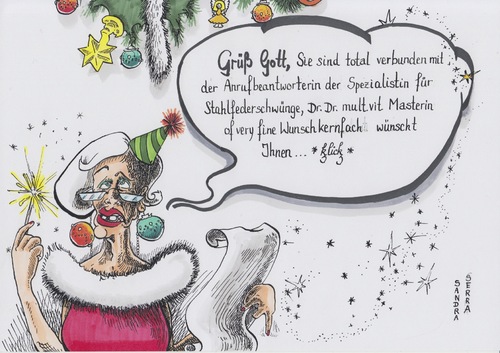 Grüß Gott, Sie sind total verbunden mit
der Anrufbeantworterin der Spezialistin für
Stahlfederschwünge, Dr. Dr. mult.vit Masterin
of very fine Wunschkernfach wünscht
Ihnen... *klick*
SANDRA
SERRA